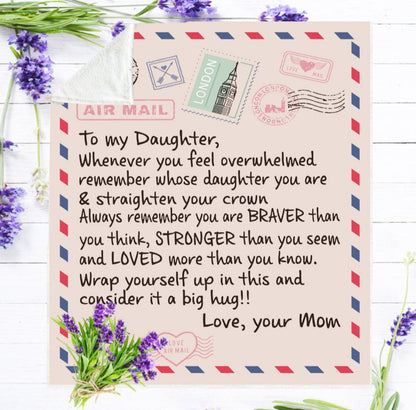 LONDON
LOVE
AIR MAIL
To my Daughter,
Whenever you feel overwhelmed
remember whose daughter you are
& straighten your crown
Always remember you are BRAVER than
you think, STRONGER than you seem
and LOVED more than you know.
Wrap yourself up in this and
consider it a big hug!!
Love, your Mom
LOVE
AIR MAIL